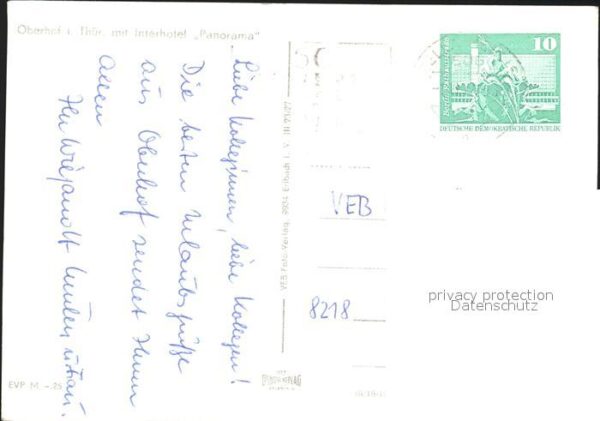 Oberhof i. Thür. mit Interhotel „Panorama“
Liebe Kolleginnen, liebe Kollegen!
Die besten Urlaubsgrüße
aus Oberhof sendet Ihnen
allen
Ihr
u. Frau.
EVP M —.25
VEB Foto-Verlag
10
Berlin, Rathausstraße
DEUTSCHE DEMOKRATISCHE REPUBLIK
VEB
8218
privacy protection
Datenschutz